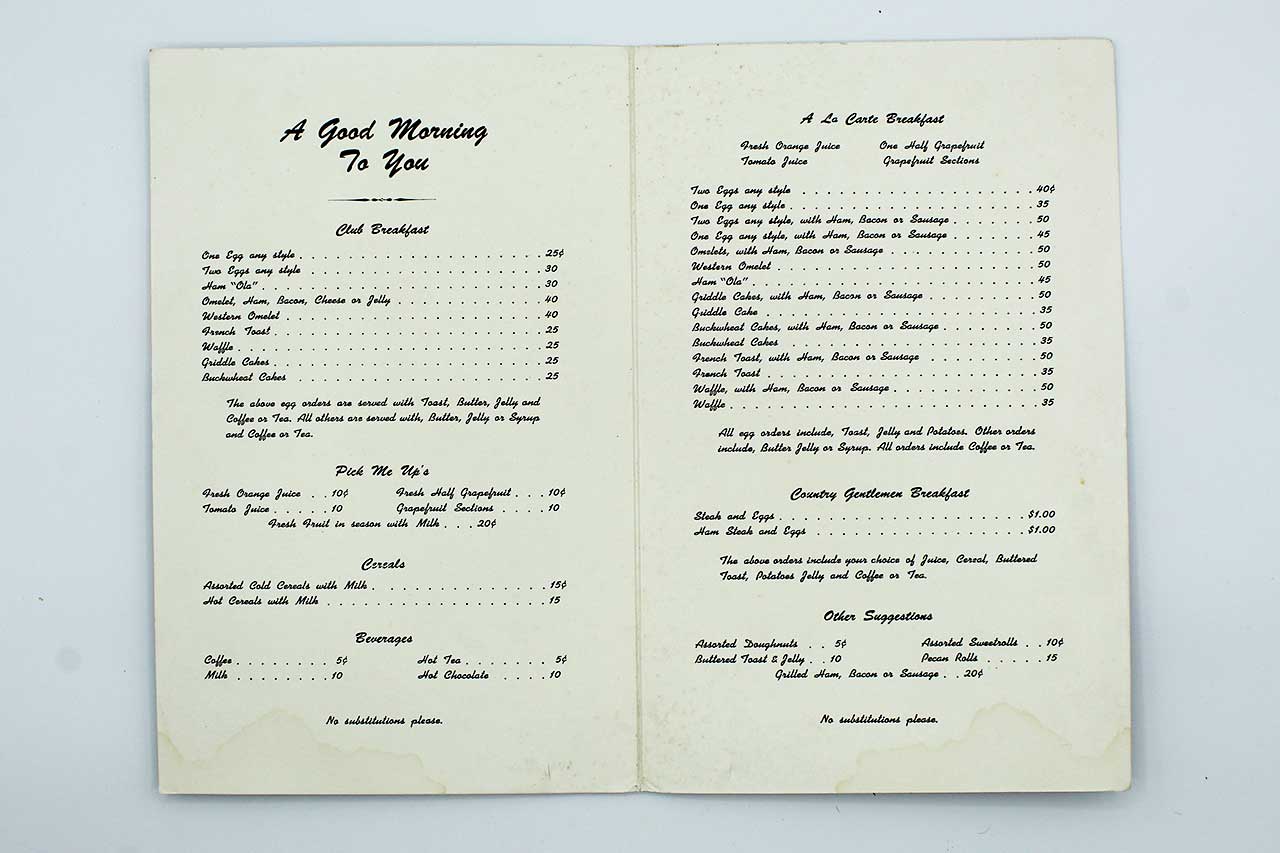 A Good Morning
To You
Club Breakfast
One Egg any style . . . . . . . . . . . . . . . . . . . . . 25¢
Two Eggs any style . . . . . . . . . . . . . . . . . . . . 30
Ham "Ola" . . . . . . . . . . . . . . . . . . . . . . . . 30
Omelet, Ham, Bacon, Cheese or Jelly . . . . . . . . . . . . 40
Western Omelet . . . . . . . . . . . . . . . . . . . . . . 40
French Toast . . . . . . . . . . . . . . . . . . . . . . . 25
Waffle . . . . . . . . . . . . . . . . . . . . . . . . . . 25
Griddle Cakes . . . . . . . . . . . . . . . . . . . . . . . 25
Buckwheat Cakes . . . . . . . . . . . . . . . . . . . . . 25
The above egg orders are served with Toast, Butter, Jelly and
Coffee or Tea. All others are served with, Butter, Jelly or Syrup
and Coffee or Tea.
Pick Me Up's
Fresh Orange Juice . . 10¢ Fresh Half Grapefruit . . . 10¢
Tomato Juice . . . . . 10 Grapefruit Sections . . . . 10
Fresh Fruit in season with Milk . . . 20¢
Cereals
Assorted Cold Cereals with Milk . . . . . . . . . . . . . . 15¢
Hot Cereals with Milk . . . . . . . . . . . . . . . . . . 15
Beverages
Coffee . . . . . . . . 5¢ Hot Tea . . . . . . . 5¢
Milk . . . . . . . . 10 Hot Chocolate . . . . . 10
No substitutions please.
A La Carte Breakfast
Fresh Orange Juice One Half Grapefruit
Tomato Juice Grapefruit Sections
Two Eggs any style . . . . . . . . . . . . . . . . . . . . 40¢
One Egg any style . . . . . . . . . . . . . . . . . . . . . 35
Two Eggs any style, with Ham, Bacon or Sausage . . . . . . . 50
One Egg any style, with Ham, Bacon or Sausage . . . . . . . 45
Omelets, with Ham, Bacon or Sausage . . . . . . . . . . . . 50
Western Omelet . . . . . . . . . . . . . . . . . . . . . . 50
Ham "Ola" . . . . . . . . . . . . . . . . . . . . . . . . 45
Griddle Cakes, with Ham, Bacon or Sausage . . . . . . . . . 50
Griddle Cake . . . . . . . . . . . . . . . . . . . . . . . 35
Buckwheat Cakes, with Ham, Bacon or Sausage . . . . . . . . 50
Buckwheat Cakes . . . . . . . . . . . . . . . . . . . . . 35
French Toast, with Ham, Bacon or Sausage . . . . . . . . . 50
French Toast . . . . . . . . . . . . . . . . . . . . . . . 35
Waffle, with Ham, Bacon or Sausage . . . . . . . . . . . . 50
Waffle . . . . . . . . . . . . . . . . . . . . . . . . . . 35
All egg orders include, Toast, Jelly and Potatoes. Other orders
include, Butter Jelly or Syrup. All orders include Coffee or Tea.
Country Gentlemen Breakfast
Steak and Eggs . . . . . . . . . . . . . . . . . . . . . $1.00
Ham Steak and Eggs . . . . . . . . . . . . . . . . . . $1.00
The above orders include your choice of Juice, Cereal, Buttered
Toast, Potatoes Jelly and Coffee or Tea.
Other Suggestions
Assorted Doughnuts . . 5¢ Assorted Sweetrolls . . 10¢
Buttered Toast & Jelly . . 10 Pecan Rolls . . . . . 15
Grilled Ham, Bacon or Sausage . . 20¢
No substitutions please.